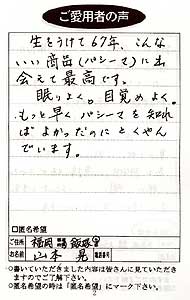 ご愛用者の声
生をうけて67年、こんな
いい商品(パシーマ)に出
会えて最高です。
眠りよく。目覚めよく。
もっと早くパシーマを知れ
ばよかったのにとくやん
でいます。
□匿名希望
ご住所 福岡 飯塚
お名前 山本 電話番号
○書いていただきました内容は皆さんに見ていただき
ますのでご了解下さい。
○匿名希望の時は「匿名希望」にマーク下さい。